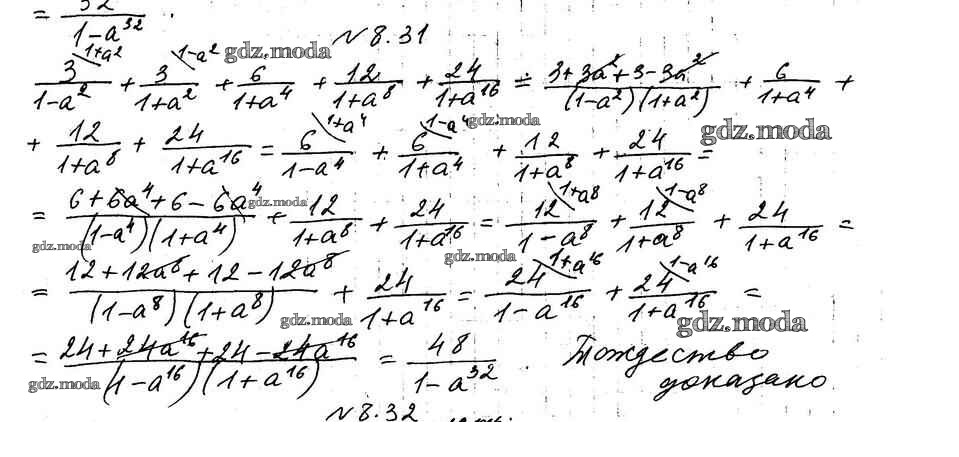 = 32/(1-a^32) .
№ 8.31
1+a^2 1-a^2 gdz.moda
3/(1-a^2) + 3/(1+a^2) + 6/(1+a^4) + 12/(1+a^8) + 24/(1+a^16) = (3+3a^2+3-3a^2)/((1-a^2)(1+a^2)) + 6/(1+a^4) +
1+a^4 1-a^4 gdz.moda gdz.moda
+ 12/(1+a^8) + 24/(1+a^16) = 6/(1-a^4) + 6/(1+a^4) + 12/(1+a^8) + 24/(1+a^16) =
gdz.moda 1+a^8 1-a^8
= (6+6a^4+6-6a^4)/((1-a^4)(1+a^4)) + 12/(1+a^8) + 24/(1+a^16) = 12/(1-a^8) + 12/(1+a^8) + 24/(1+a^16) =
gdz.moda gdz.moda 1+a^16 1-a^16
= (12+12a^8+12-12a^8)/((1-a^8)(1+a^8)) + 24/(1+a^16) = 24/(1-a^16) + 24/(1+a^16) =
gdz.moda gdz.moda
= (24+24a^16+24-24a^16)/((1-a^16)(1+a^16)) = 48/(1-a^32) . Тождество
gdz.moda доказано.
№ 8.32